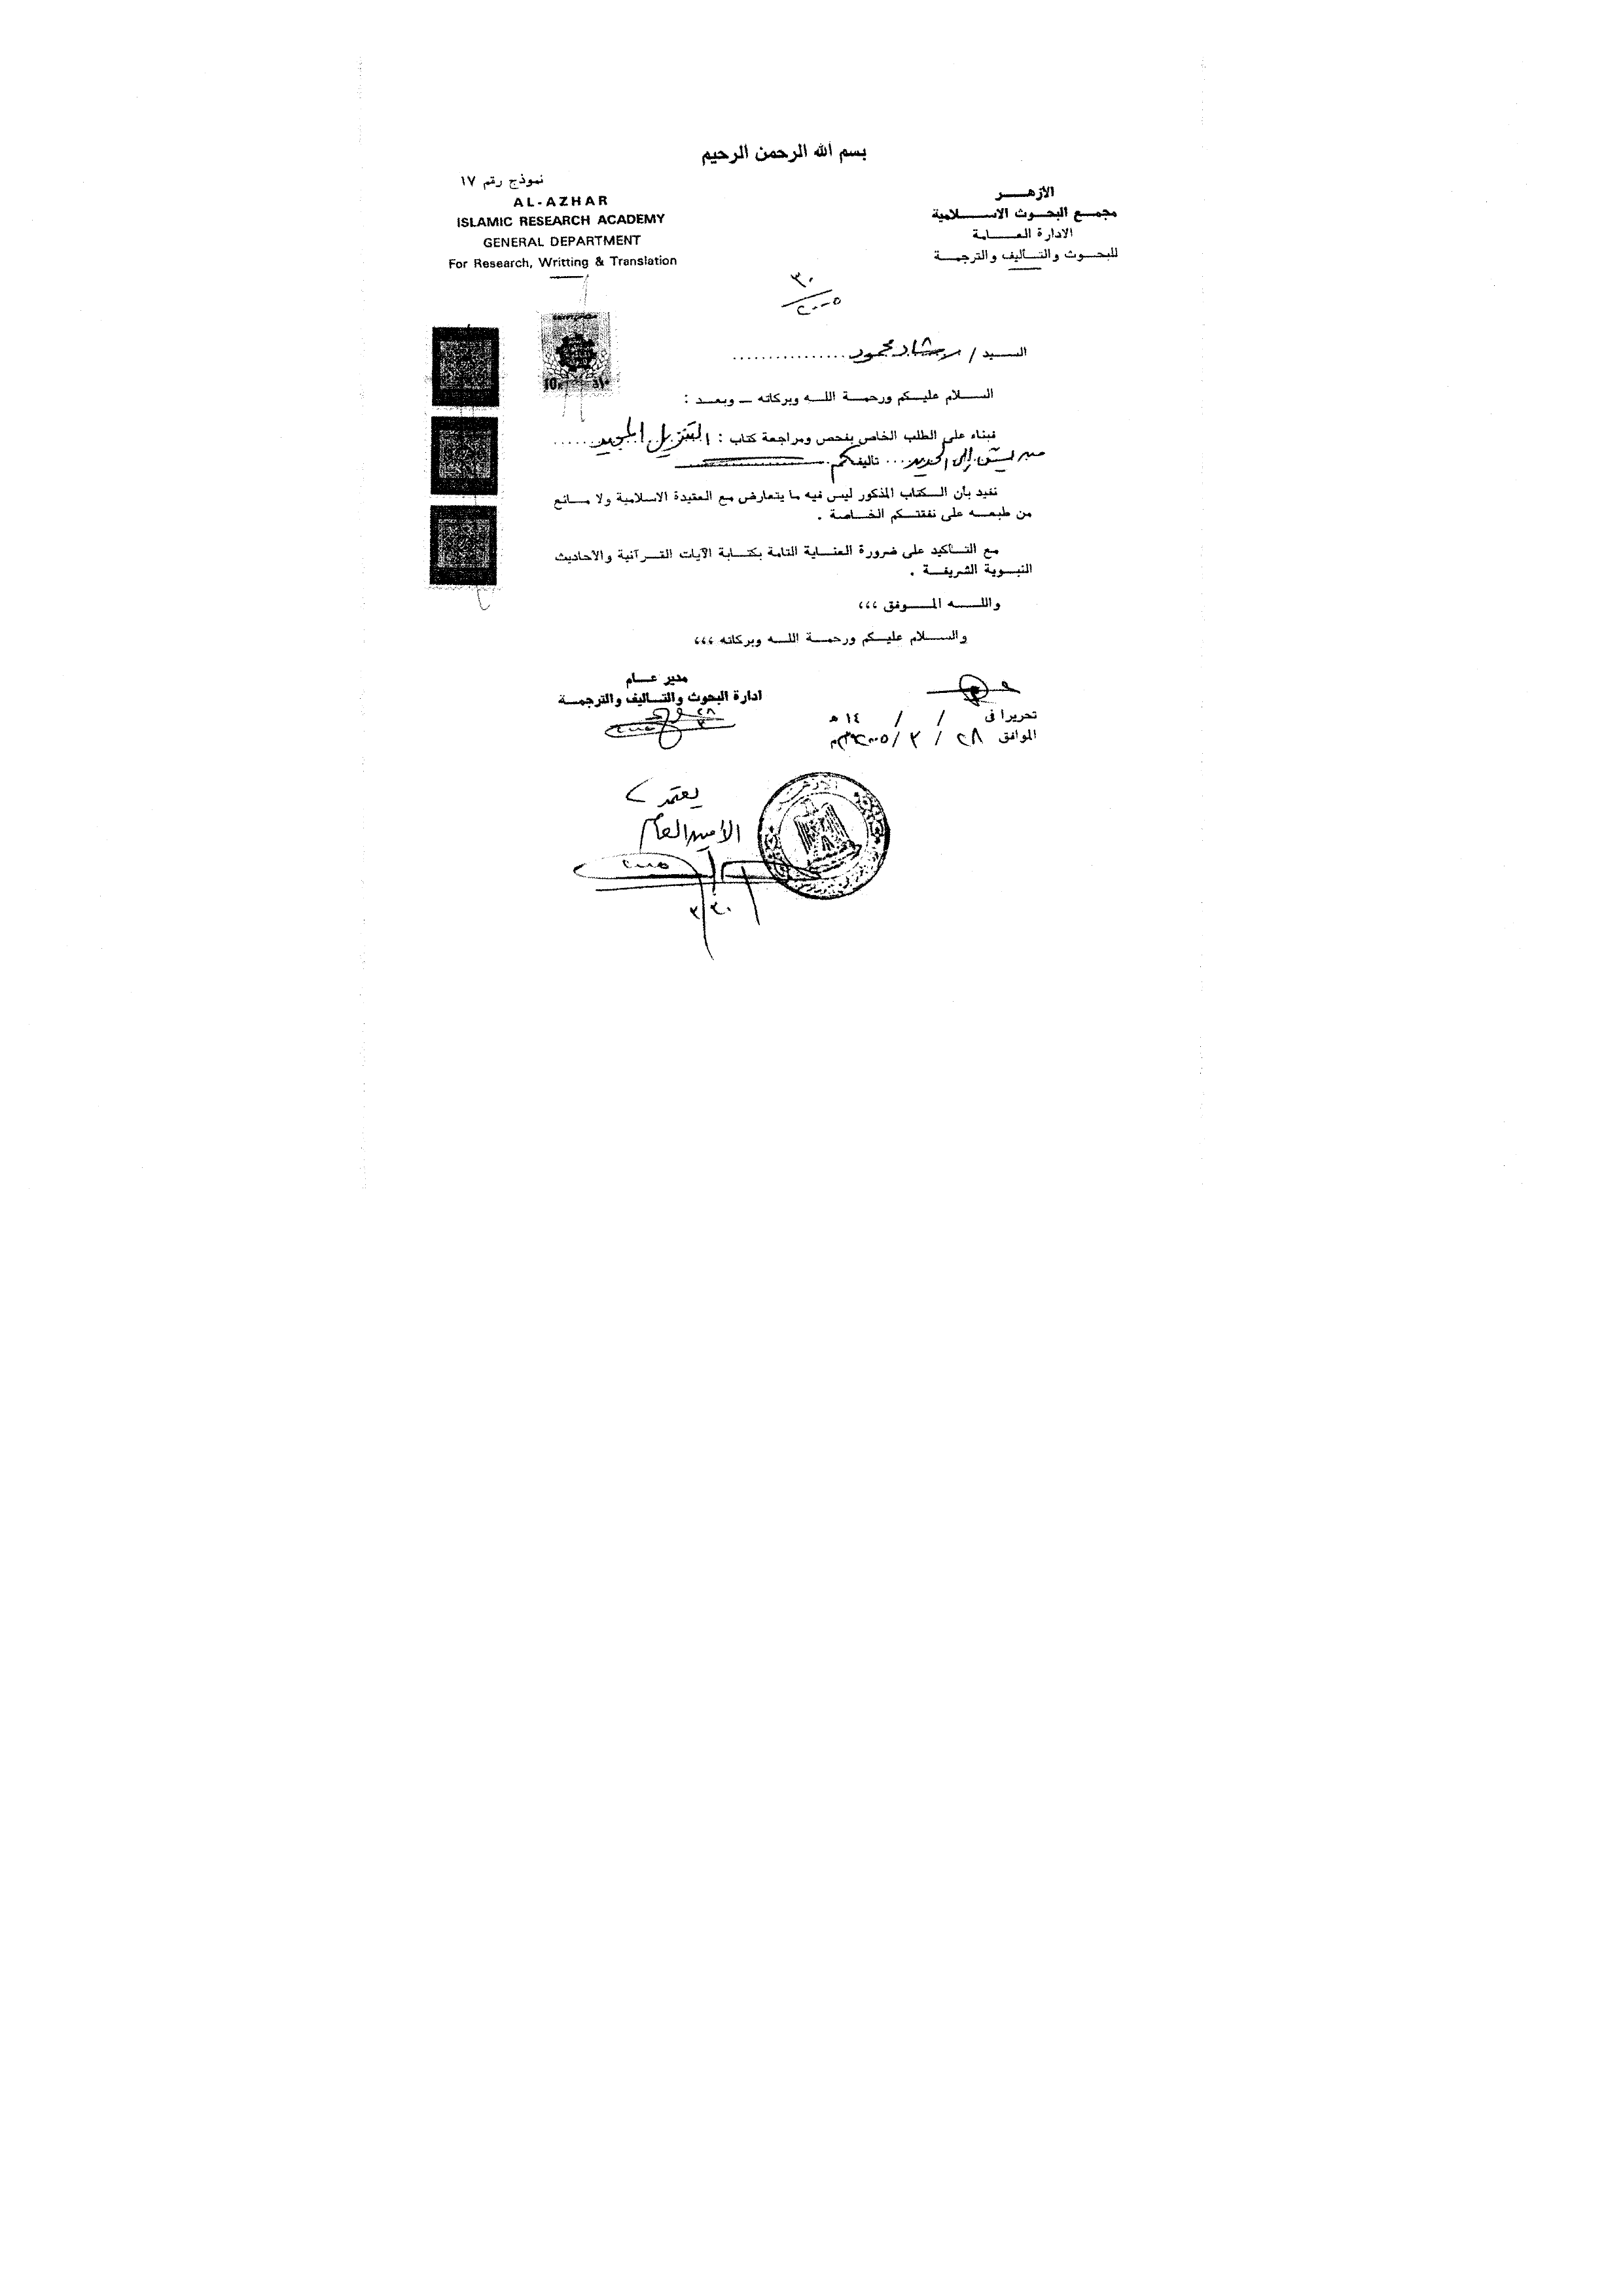 بسم الله الرحمن الرحيم
نموذج رقم ١٧
الأزهـــر
مجمـع البحـوث الاســـلامية
الادارة العـــامة
للبحـوث والتـأليف والترجمـة
AL-AZHAR
ISLAMIC RESEARCH ACADEMY
GENERAL DEPARTMENT
For Research, Writting & Translation
٣٠
٢٠٠٥
الســيد / رشاد محمود ................
الســـلام عليـكم ورحمـة اللـه وبركاته ــ وبعـد :
فبناء على الطلب الخاص بفحص ومراجعة كتاب : التنزيل المجيد .....
من يس إلى الحديد ... تأليفكم
نفيد بأن الـكتاب المذكور ليس فيه ما يتعارض مع العقيدة الاسلامية ولا مـانع
من طبعـه على نفقتـكم الخـاصة .
مع التـأكيد على ضرورة العنـاية التامة بكتـابة الآيات القـرآنية والأحاديث
النبـوية الشريفـة .
واللـــه المـــوفق ،،،
والســـلام عليـكم ورحمـة اللـه وبركاته ،،،
مدير عـــام
ادارة البحوث والتـأليف والترجمـة
٢٨
٣
تحريرا فى / / ١٤ هـ
الموافق ٢٨ / ٣ / ٢٠٠٥م
يعتمد
الأمين العام
٣/٣٠